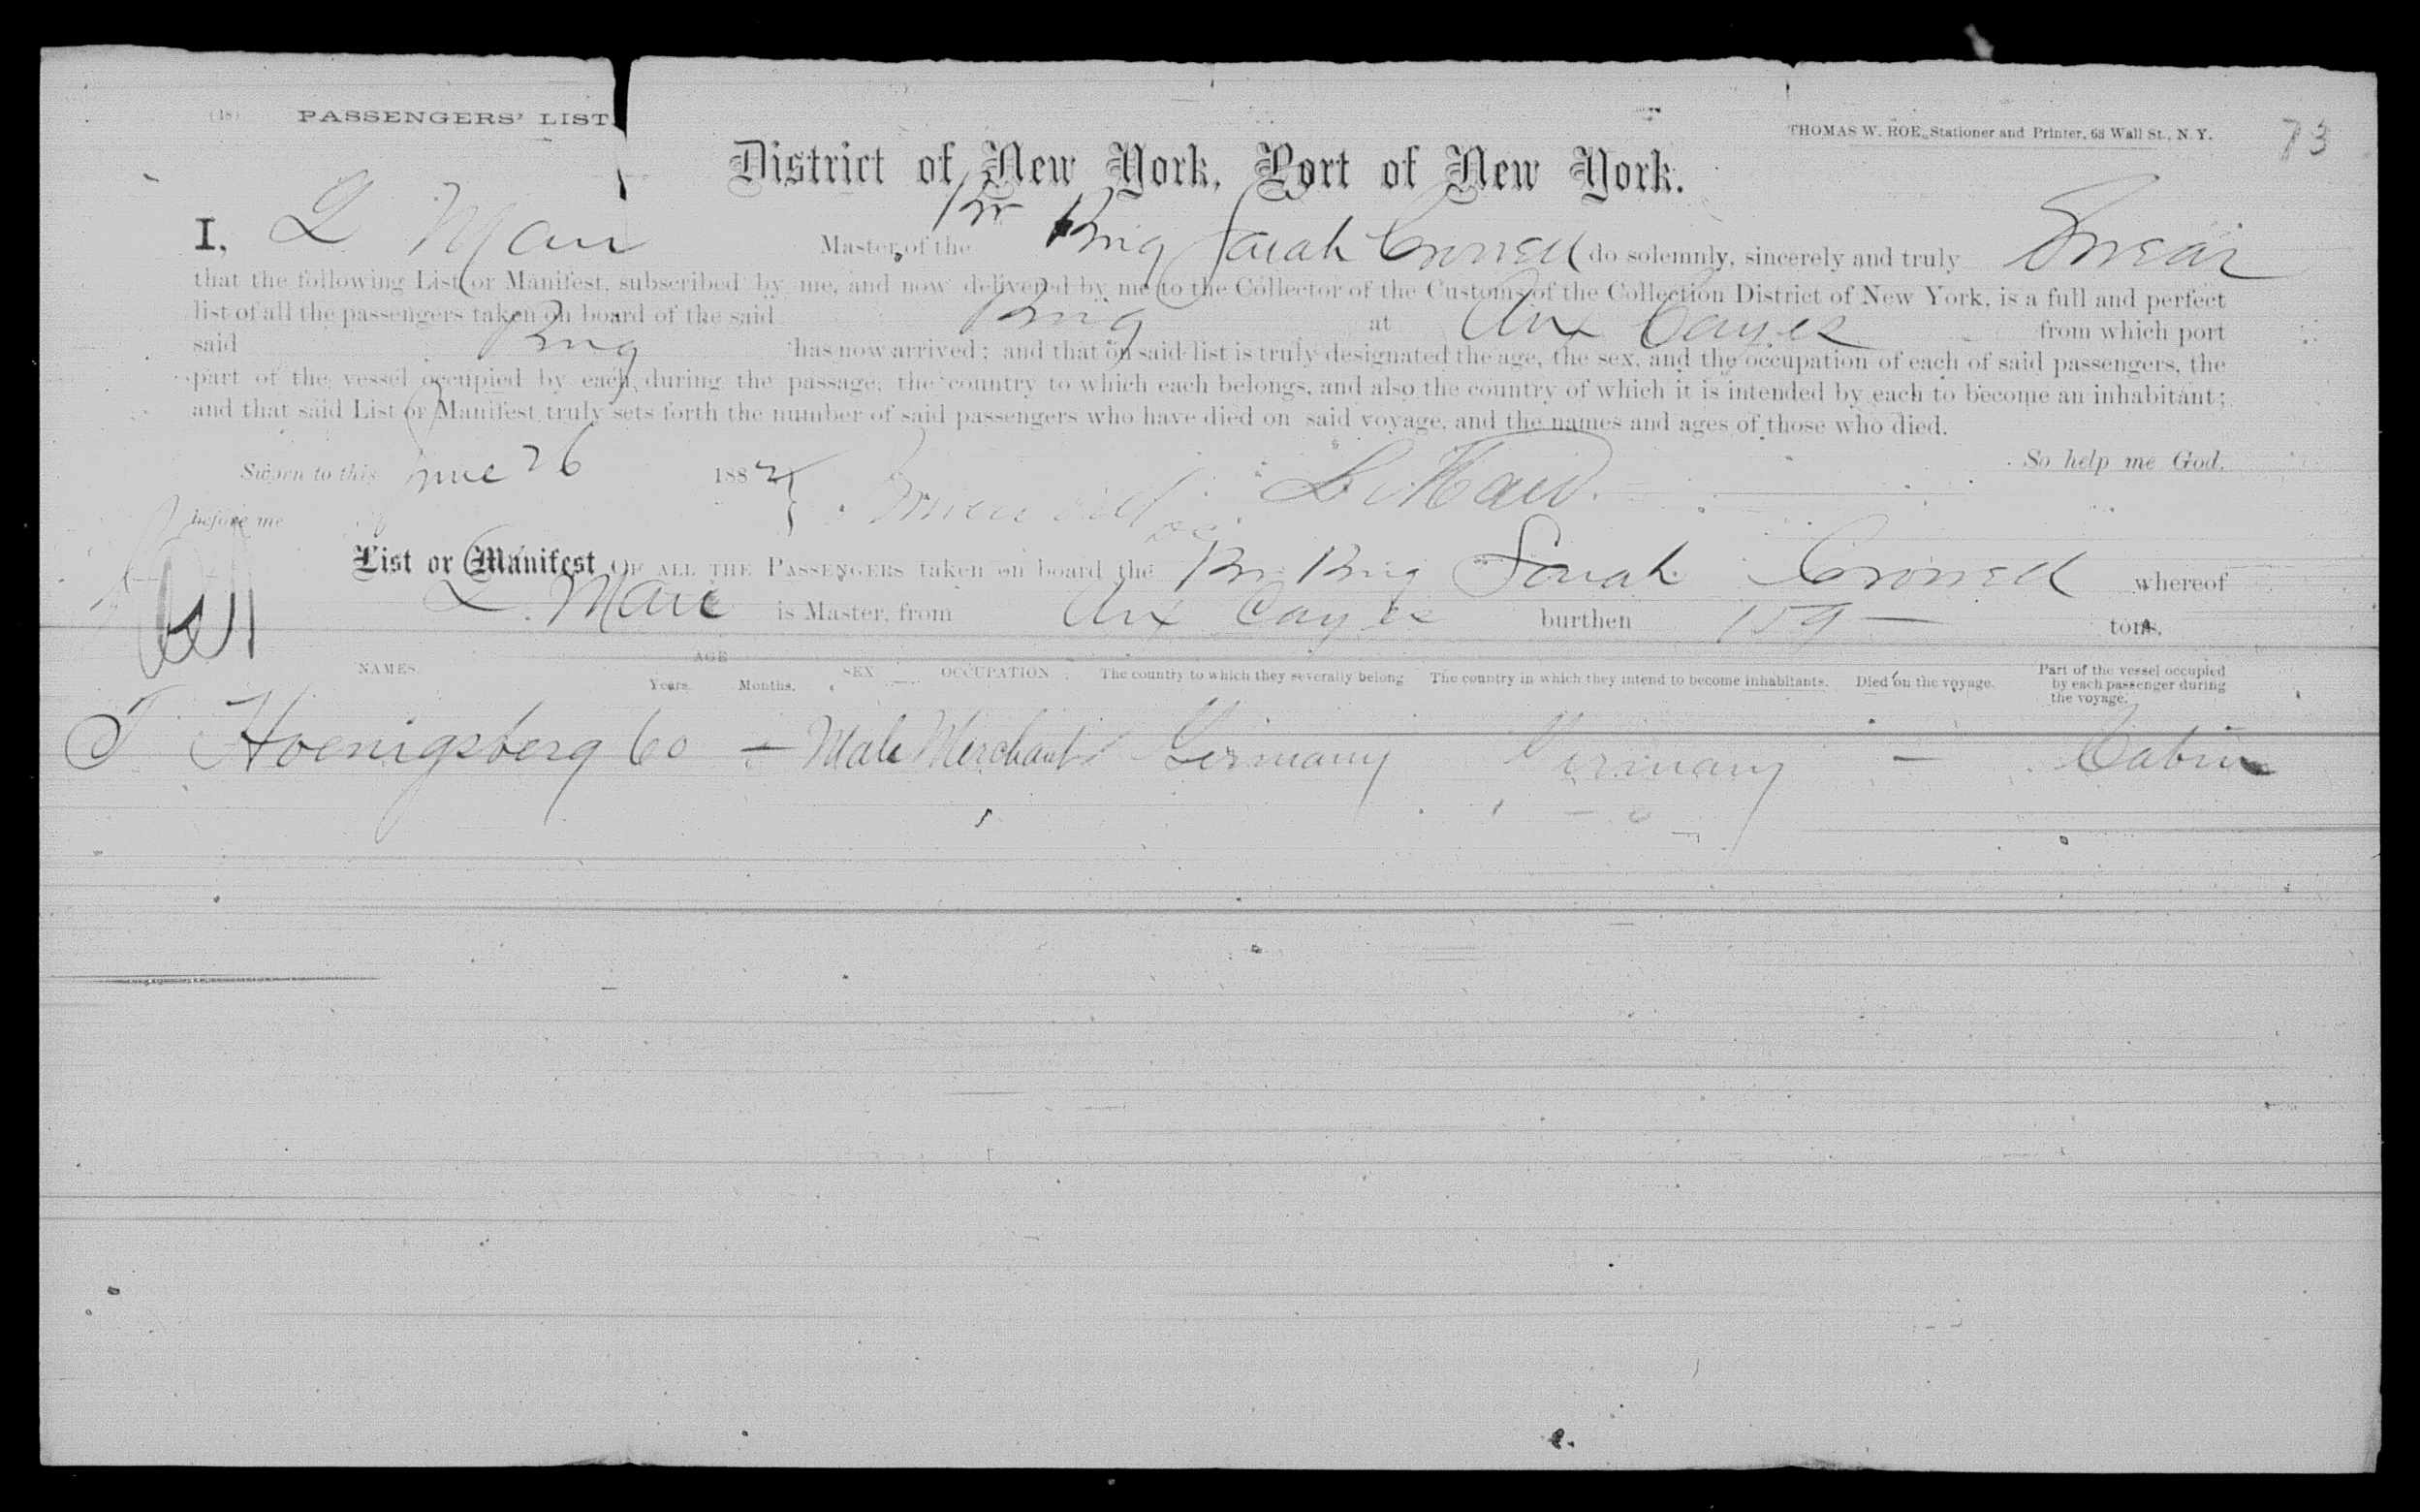 (48) PASSENGERS' LIST.
THOMAS W. ROE, Stationer and Printer, 63 Wall St., N. Y.
73
District of New York, Port of New York.
I, L Master of the Br Brig Sarah do solemnly, sincerely and truly Swear
that the following List or Manifest, subscribed by me, and now delivered by me to the Collector of the Customs of the Collection District of New York, is a full and perfect
list of all the passengers taken on board of the said Brig at Aux Cayes from which port
said Brig has now arrived; and that on said list is truly designated the age, the sex, and the occupation of each of said passengers, the
part of the vessel occupied by each, during the passage; the country to which each belongs, and also the country of which it is intended by each to become an inhabitant;
and that said List or Manifest truly sets forth the number of said passengers who have died on said voyage, and the names and ages of those who died.
So help me God.
Sworn to this June 26 1882
before me
List or Manifest OF ALL THE PASSENGERS taken on board the Br. Brig Sarah whereof
L. is Master, from Aux Cayes burthen 159 — tons.
NAMES. AGE Years. Months. SEX OCCUPATION The country to which they severally belong The country in which they intend to become inhabitants. Died on the voyage. Part of the vessel occupied by each passenger during the voyage.
Hoenigsberg 60 — Male Merchant Germany Germany — Cabin